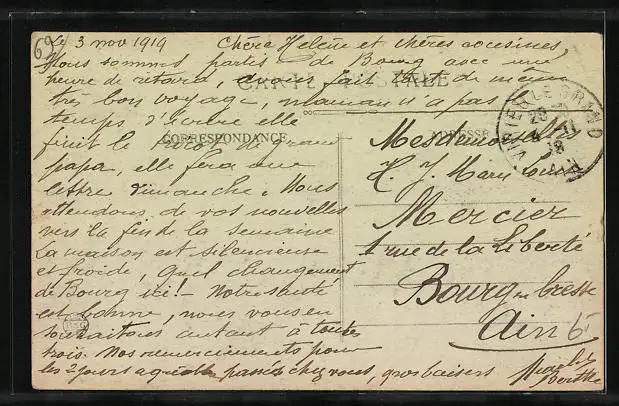 Le 3 nov 1919 Chère Helène et chères cousines,
Nous sommes partis de Bourg avec une
heure de retard, avons fait tout de même
CARTE POSTALE
très bon voyage, maman n'a pas
temps d'écrire elle
CORRESPONDANCE
ADRESSE
finit le de grand
papa, elle fera une
lettre dimanche. Nous
attendons de vos nouvelles
vers la fin de la semaine
La maison est silencieuse
et froide, quel changement
de Bourg ici! - Notre santé
est bonne, nous vous en
souhaitons autant à toutes
trois. Nos remerciements pour
les 2 jours agréables passés chez vous, gros baisers
Berthe
Mesdemoiselles
H. J. Mary Louise
Mercier
1 rue de la Liberté
Bourg en Bresse
Ain
LE GRAND